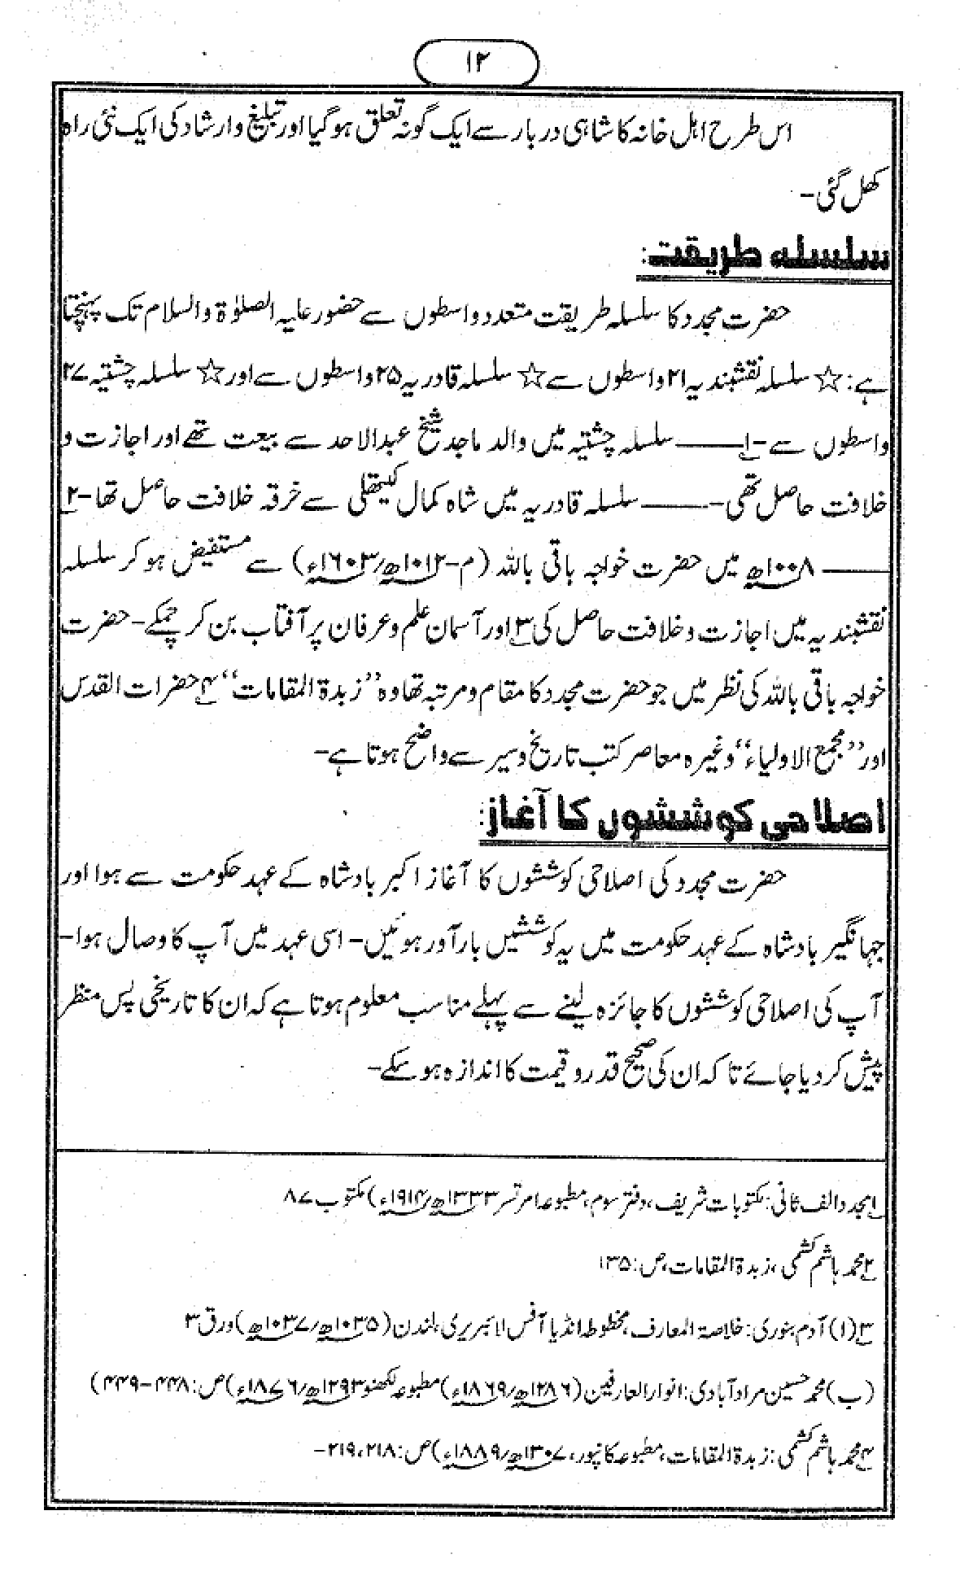 ۱۲
اس طرح اہل خانہ کا شاہی دربار سے ایک گونہ تعلق ہوگیا اور تبلیغ وارشاد کی ایک نئی راہ
کھل گئی-
سلسلہ طریقت:
حضرت مجدد کا سلسلہ طریقت متعدد واسطوں سے حضور علیہ الصلوٰۃ والسلام تک پہنچتا
ہے: ☆ سلسلہ نقشبندیہ ۲۱ واسطوں سے ☆ سلسلہ قادریہ ۲۵ واسطوں سے اور ☆ سلسلہ چشتیہ ۲۷
واسطوں سے-۱ــــــ سلسلہ چشتیہ میں والد ماجد شیخ عبدالاحد سے بیعت تھے اور اجازت و
خلافت حاصل تھی-ــــــ سلسلہ قادریہ میں شاہ کمال کیتھلی سے خرقہ خلافت حاصل تھا-۲
ــــــ ۱۰۰۸ھ میں حضرت خواجہ باقی باللہ (م-۱۰۱۲ھ/۱۶۰۳ء) سے مستفیض ہوکر سلسلہ
نقشبندیہ میں اجازت وخلافت حاصل کی ۳ اور آسمان علم وعرفان پر آفتاب بن کر چمکے- حضرت
خواجہ باقی باللہ کی نظر میں جو حضرت مجدد کا مقام ومرتبہ تھا وہ ”زبدۃ المقامات“ ۴ حضرات القدس
اور ”مجمع الاولیاء“ وغیرہ معاصر کتب تاریخ وسیر سے واضح ہوتا ہے-
اصلاحی کوششوں کا آغاز:
حضرت مجدد کی اصلاحی کوششوں کا آغاز اکبر بادشاہ کے عہد حکومت سے ہوا اور
جہانگیر بادشاہ کے عہد حکومت میں یہ کوششیں بارآور ہوئیں- اسی عہد میں آپ کا وصال ہوا-
آپ کی اصلاحی کوششوں کا جائزہ لینے سے پہلے مناسب معلوم ہوتا ہے کہ ان کا تاریخی پس منظر
پیش کردیا جائے تاکہ ان کی صحیح قدر وقیمت کا اندازہ ہوسکے-
۱ مجدد الف ثانی: مکتوبات شریف، دفتر سوم، مطبوعہ امرتسر ۱۳۳۳ھ/۱۹۱۴ء) مکتوب ۸۷
۲ محمد ہاشم کشمی، زبدۃ المقامات، ص: ۱۳۵
۳ (۱) آدم بنوری: خلاصۃ المعارف، مخطوطہ انڈیا آفس لائبریری، لندن (۱۰۳۵ھ/۱۰۳۷ھ) ورق ۳
(ب) محمد حسین مراد آبادی: انوار العارفین (۱۲۸۶ھ/۱۸۶۹ء) مطبوعہ لکھنو ۱۲۹۳ھ/۱۸۷۶ء) ص: ۴۴۸-۴۴۹)
۴ محمد ہاشم کشمی: زبدۃ المقامات، مطبوعہ کانپور، ۱۳۰۷ھ/۱۸۸۹ء) ص: ۲۱۸، ۲۱۹-